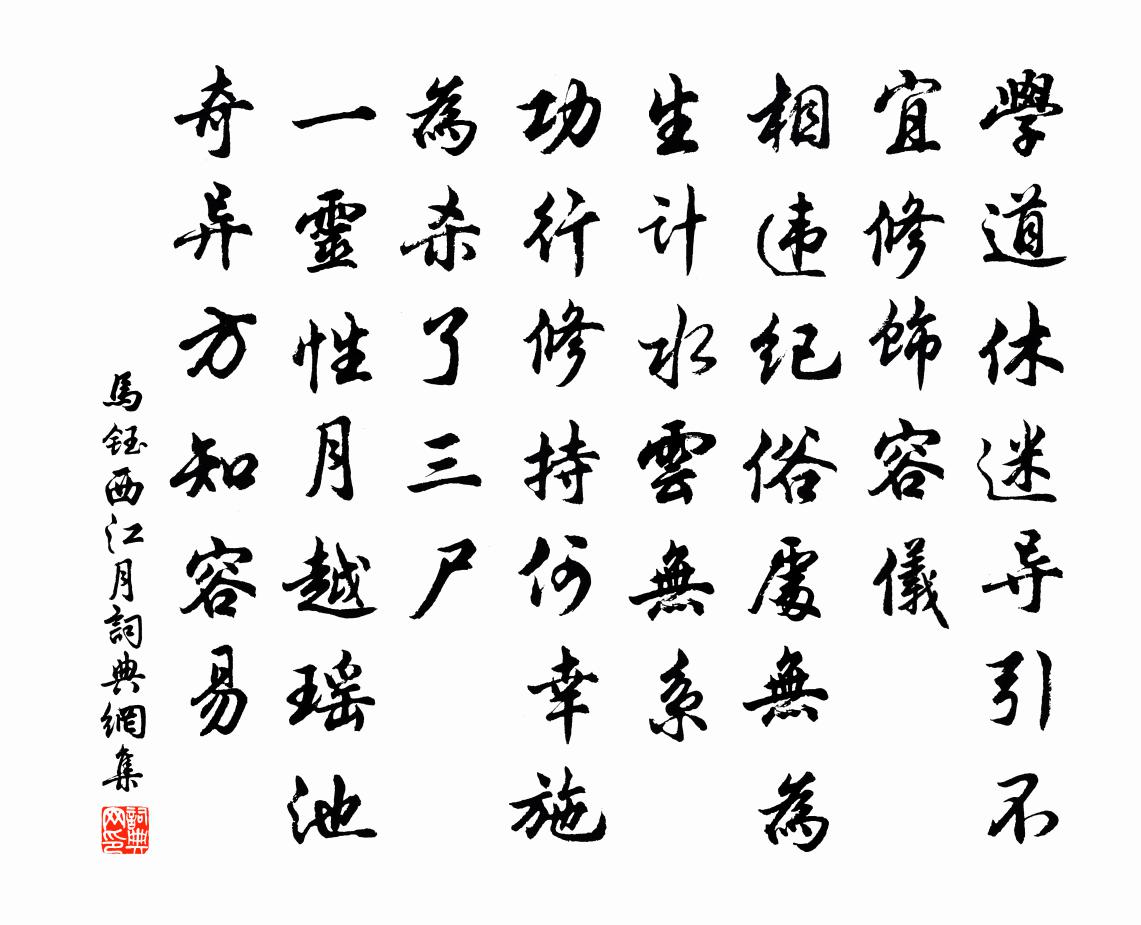 學道休迷导引不
宜修飾容儀
相违纪俗處無為
生计水雲無系
功行修持何幸施
為杀了三尸
一靈性月越瑶池
奇异方知容易
馬钰西江月詞典網集
詞典网印